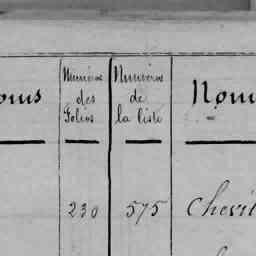 oms
Numéros
des
Folios
Numéros
de
la liste
Nom
230
575
Chevil